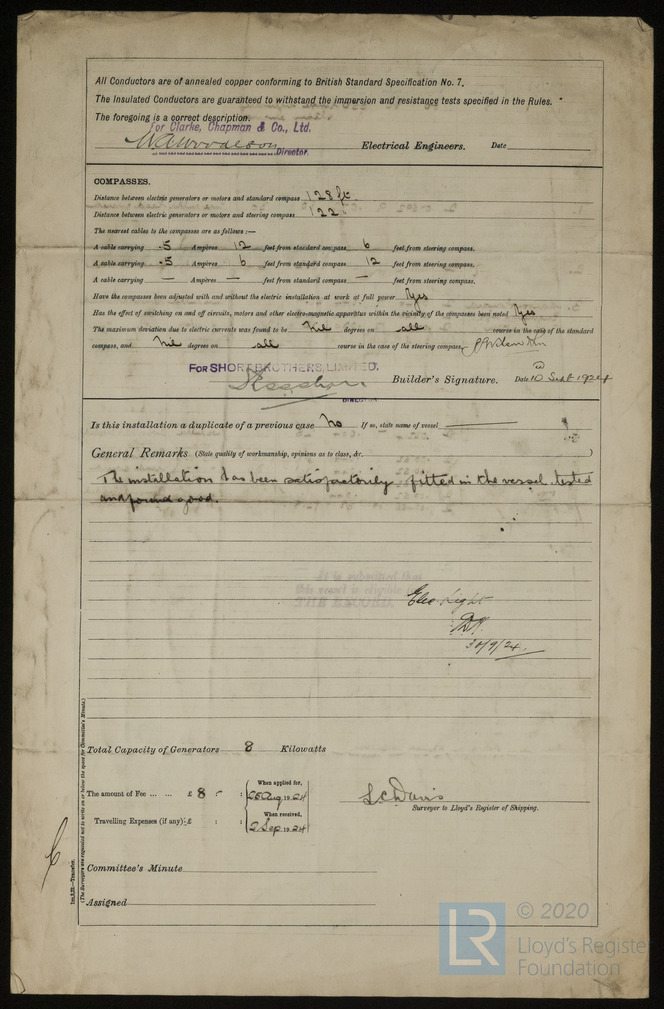 All Conductors are of annealed copper conforming to British Standard Specification No. 7.
The Insulated Conductors are guaranteed to withstand the immersion and resistance tests specified in the Rules.
The foregoing is a correct description.
For Clarke, Chapman & Co., Ltd.
Director. Electrical Engineers. Date
COMPASSES.
Distance between electric generators or motors and standard compass 128 ft.
Distance between electric generators or motors and steering compass 122
The nearest cables to the compasses are as follows:—
A cable carrying .5 Ampères 12 feet from standard compass 6 feet from steering compass.
A cable carrying .5 Ampères 6 feet from standard compass 12 feet from steering compass.
A cable carrying — Ampères — feet from standard compass — feet from steering compass.
Have the compasses been adjusted with and without the electric installation at work at full power Yes
Has the effect of switching on and off circuits, motors and other electro-magnetic apparatus within the vicinity of the compasses been noted Yes
The maximum deviation due to electric currents was found to be Nil degrees on all course in the case of the standard
compass, and Nil degrees on all course in the case of the steering compass.
FOR SHORT BROTHERS, LIMITED.
Builder's Signature. Date 10 Sept 1924
DIRECTOR
Is this installation a duplicate of a previous case No If so, state name of vessel
General Remarks (State quality of workmanship, opinions as to class, &c. )
The installation has been satisfactorily fitted in the vessel, tested
and found good.
Elec. Light
30/9/24
Total Capacity of Generators 8 Kilowatts
The amount of Fee ... ... £ 8 : - :
When applied for,
25 Aug 1924
When received,
Travelling Expenses (if any) £ : :
2 Sep 1924
L. C. Davis
Surveyor to Lloyd's Register of Shipping.
Committee's Minute
Assigned
(The Surveyors are requested not to write on or below the space for Committee's Minute.)
© 2020
LR
Lloyd's Register
Foundation